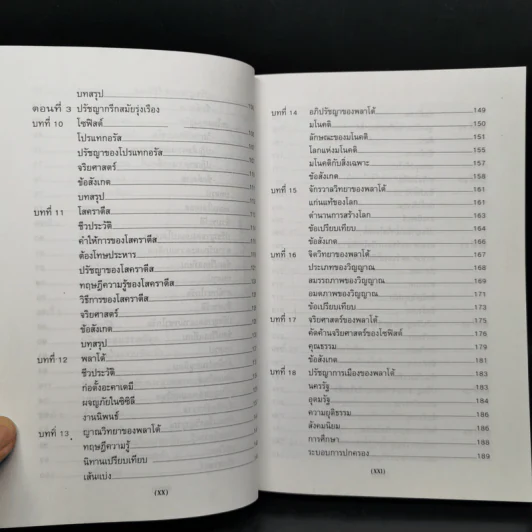 บทสรุป
ตอนที่ 3 ปรัชญากรีกสมัยรุ่งเรือง
บทที่ 10 โซฟิสต์
โปรแทกอรัส
ปรัชญาของโปรแทกอรัส
จริยศาสตร์
ข้อสังเกต
บทสรุป
บทที่ 11 โสคราตีส
ชีวประวัติ
คำให้การของโสคราตีส
ต้องโทษประหาร
ปรัชญาของโสคราตีส
ทฤษฎีความรู้ของโสคราตีส
วิธีการของโสคราตีส
จริยศาสตร์
ข้อสังเกต
บทสรุป
บทที่ 12 พลาโต้
ชีวประวัติ
ก่อตั้งอะคาเดมี
ผจญภัยในซิซิลี
งานนิพนธ์
บทที่ 13 ญาณวิทยาของพลาโต้
ทฤษฎีความรู้
นิทานเปรียบเทียบ
เส้นแบ่ง
(XX)
บทที่ 14 อภิปรัชญาของพลาโต้ 149
มโนคติ 150
ลักษณะของมโนคติ 151
โลกแห่งมโนคติ 155
มโนคติกับสิ่งเฉพาะ 157
ข้อสังเกต 158
บทที่ 15 จักรวาลวิทยาของพลาโต้ 161
แก่นแท้ของโลก 161
ตำนานการสร้างโลก 163
ข้อเปรียบเทียบ 164
ข้อสังเกต 166
บทที่ 16 จิตวิทยาของพลาโต้ 167
ประเภทของวิญญาณ 168
สมรรถภาพของวิญญาณ 169
อมตภาพของวิญญาณ 171
ข้อเปรียบเทียบ 173
บทที่ 17 จริยศาสตร์ของพลาโต้ 175
คัดค้านจริยศาสตร์ของโซฟิสต์ 176
คุณธรรม 179
ข้อสังเกต 181
บทที่ 18 ปรัชญาการเมืองของพลาโต้ 183
นครรัฐ 183
อุดมรัฐ 184
ความยุติธรรม 186
สังคมนิยม 186
การศึกษา 188
ระบอบการปกครอง 189
(XXI)